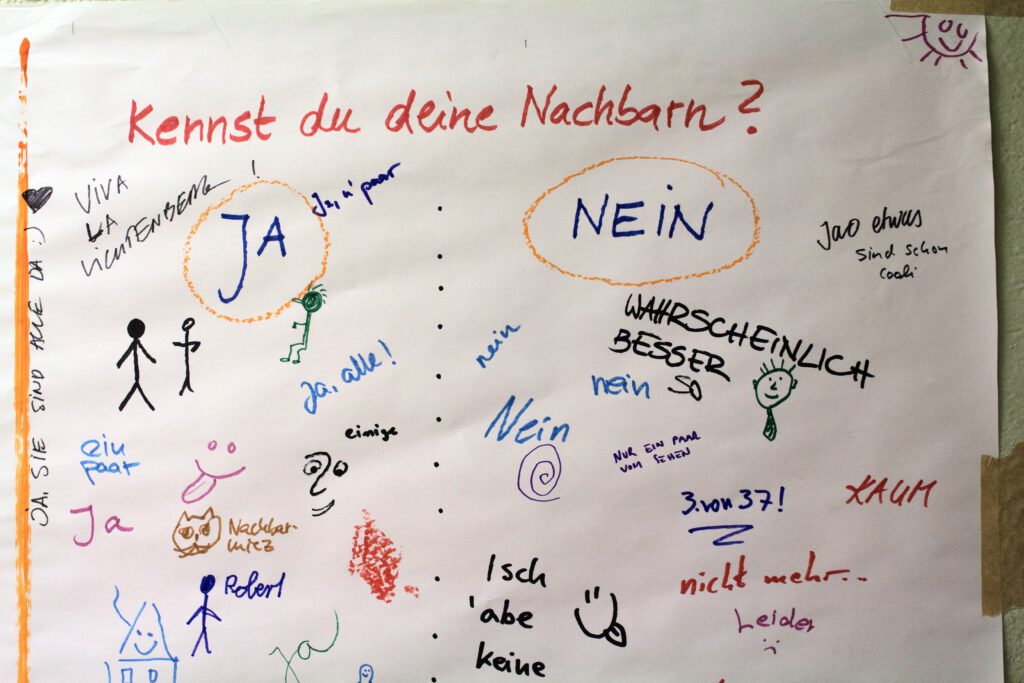 Kennst du deine Nachbarn?
VIVA
LA
LICHTENBERG!
JA
Ja, n' paar
NEIN
JA, SIE SIND ALLE DA :)
etwas
sind schon
WAHRSCHEINLICH
BESSER
SO
nein
nein
Ja, alle!
Nein
einige
ein
paar
NUR EIN PAAR
VOM SEHEN
Ja
3. von 37!
KAUM
Nachbar-
miez
Robert
Isch
'abe
keine
nicht mehr...
Leider
ja